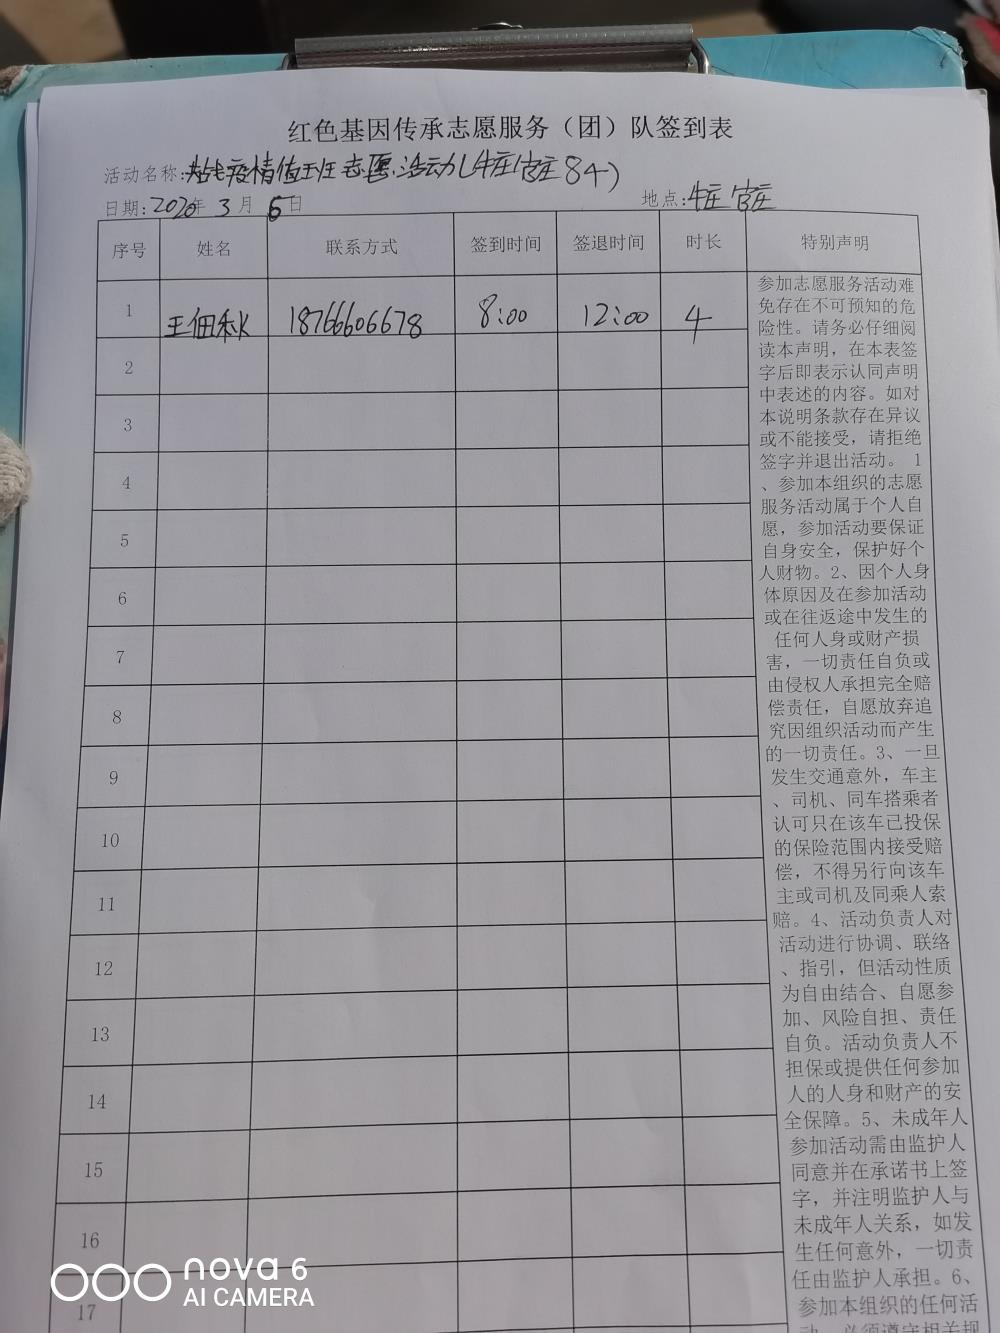 红色基因传承志愿服务（团）队签到表
活动名称:抗战疫情值班志愿活动(牛庄官庄84)
日期:2020年3月6日 地点:牛庄官庄
序号 姓名 联系方式 签到时间 签退时间 时长 特别声明
1 王佃秋 18766606678 8:00 12:00 4
2
3
4
5
6
7
8
9
10
11
12
13
14
15
16
17
参加志愿服务活动难
免存在不可预知的危
险性。请务必仔细阅
读本声明，在本表签
字后即表示认同声明
中表述的内容。如对
本说明条款存在异议
或不能接受，请拒绝
签字并退出活动。 1
、参加本组织的志愿
服务活动属于个人自
愿，参加活动要保证
自身安全，保护好个
人财物。2、因个人身
体原因及在参加活动
或在往返途中发生的
任何人身或财产损
害，一切责任自负或
由侵权人承担完全赔
偿责任，自愿放弃追
究因组织活动而产生
的一切责任。3、一旦
发生交通意外，车主
、司机、同车搭乘者
认可只在该车已投保
的保险范围内接受赔
偿，不得另行向该车
主或司机及同乘人索
赔。4、活动负责人对
活动进行协调、联络
、指引，但活动性质
为自由结合、自愿参
加、风险自担、责任
自负。活动负责人不
担保或提供任何参加
人的人身和财产的安
全保障。5、未成年人
参加活动需由监护人
同意并在承诺书上签
字，并注明监护人与
未成年人关系，如发
生任何意外，一切责
任由监护人承担。6、
参加本组织的任何活
动，必须遵守相关规
nova 6
AI CAMERA